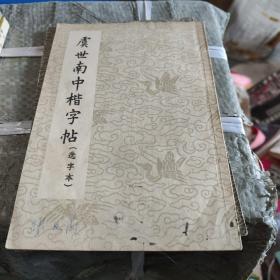 虞世南中楷字帖(选字本)